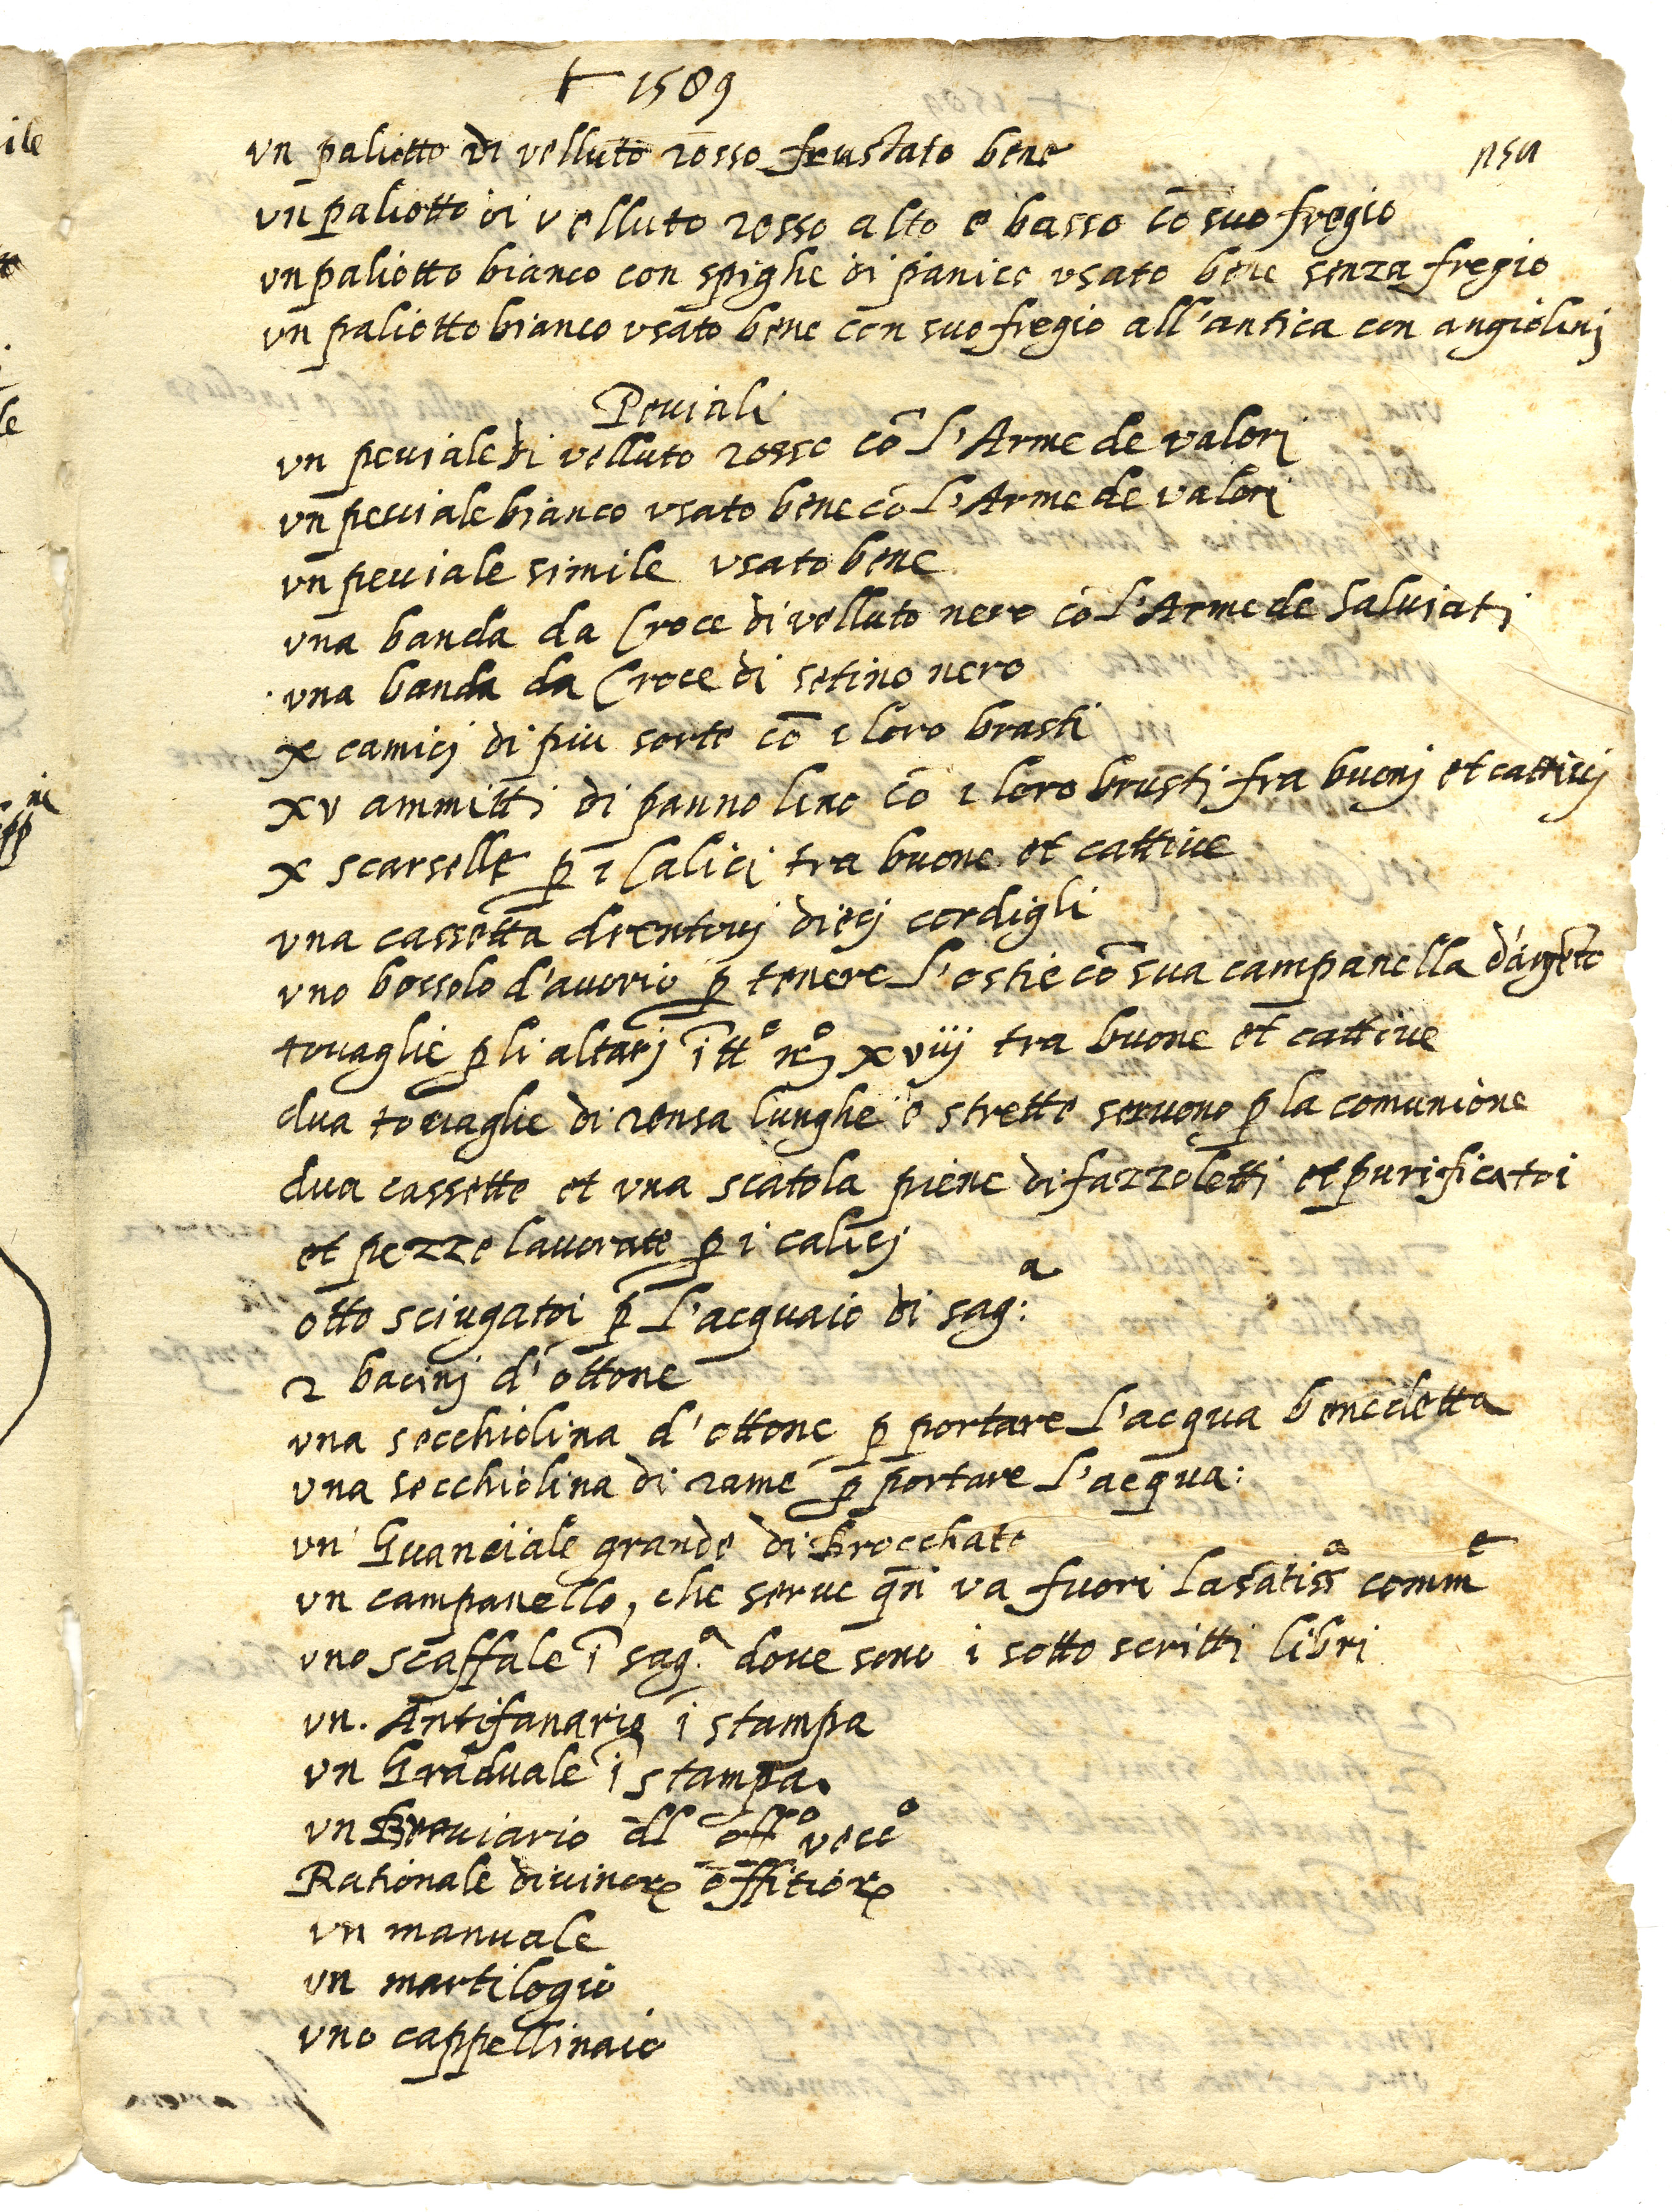 † 1589
vn paliotto di velluto rosso frustato bene
vn paliotto di velluto rosso alto e basso cō suo fregio
vn paliotto bianco con spighe di panico vsato bene senza fregio
vn paliotto bianco vsato bene con suo fregio all'antica con angiolinj
Peuiali
vn peuiale di velluto rosso cō L'Arme de valorj
vn peuiale bianco vsato bene cō L'Arme de valorj
vn peuiale simile vsato bene
vna banda da Croce di velluto nero cō L'Arme de Saluiati
vna banda da Croce di setino nero
x camicj di piu sorte cō i loro brusti
xv ammitti di panno lino cō i loro brusti fra buonj et cattiuj
x scarselle p i Calicj tra buone et cattiue
vna cassetta drentouj diecj cordigli
vno bossolo d'auorio p tenere L'ostie cō sua campanella d'argēto
touaglie p li altarj ī tt° n° xviij tra buone et cattiue
dua touaglie di rensa lunghe e strette seruono p la comunione
dua cassette et vna scatola piene di fazzoletti et purificatoi
et pezze lauorate p i calicj
otto sciugatoi p L'acquaio di sag:a
2 bacinj d'ottone
vna secchiolina d'ottone p portare L'acqua benedetta
vna secchiolina di rame p portare L'acqua:
vn Guanciale grande di Brocchato
vn campanello, che serue qn̄ va fuori la sātissa comme
vno scaffale ī sag.a doue sono i sotto scritti libri
vn. Antifanario ī stampa
vn Graduale ī stampa.
vn Breuiario dll offo vecc°
Rationale diuinorꝝ offitiorꝝ
vn manuale
vn martilogio
vno cappellinaio